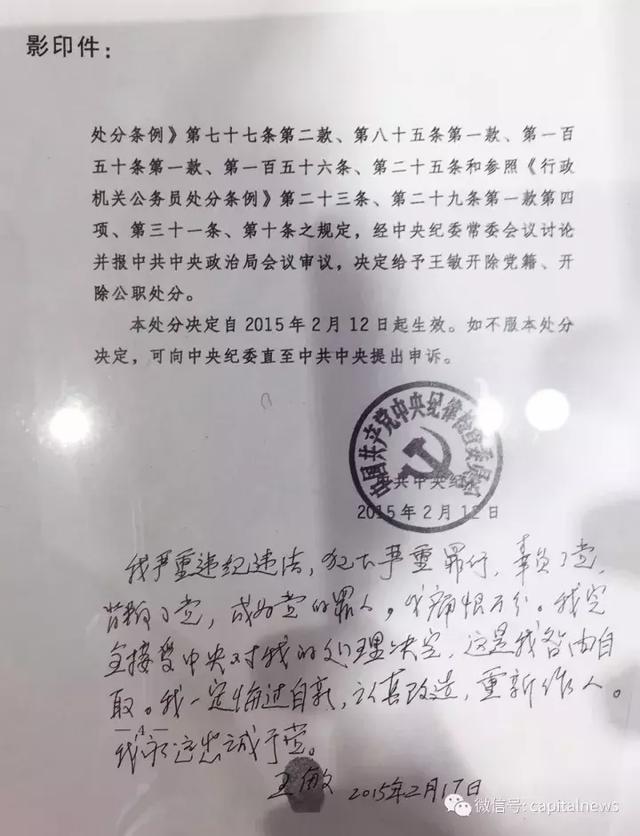 影印件：
处分条例》第七十七条第二款、第八十五条第一款、第一百
五十条第一款、第一百五十六条、第二十五条和参照《行政
机关公务员处分条例》第二十三条、第二十九条第一款第四
项、第三十一条、第十条之规定，经中央纪委常委会议讨论
并报中共中央政治局会议审议，决定给予王敏开除党籍、开
除公职处分。
本处分决定自2015年2月12日起生效。如不服本处分
决定，可向中央纪委直至中共中央提出申诉。
中国共产党中央纪律检查委员会
中共中央纪委
2015年2月12日
我严重违纪违法，犯下严重罪行，辜负了党，
背叛了党，成为党的罪人，我痛恨万分。我完
全接受中央对我的处理决定，这是我咎由自
取。我一定悔过自新，认真改造，重新作人。
—4—
我永远忠诚于党。
王敏 2015年2月17日
微信号: capitalnews